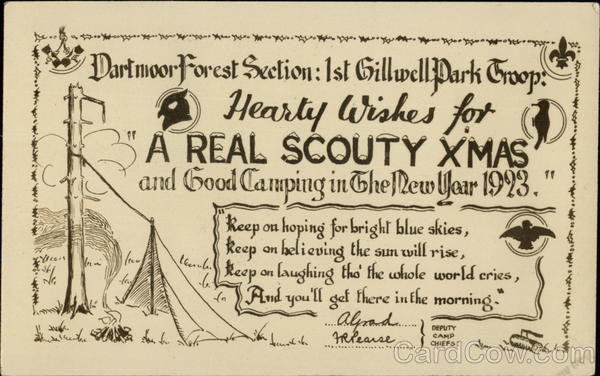 Dartmoor Forest Section: 1st Gillwell Park Troop:
Hearty Wishes for
"A REAL SCOUTY XMAS
and Good Camping in The New Year 1923."
"Keep on hoping for bright blue skies,
Keep on believing the sun will rise,
Keep on laughing tho' the whole world cries,
And you'll get there in the morning."
DEPUTY
CAMP
CHIEFS
CardCow.com